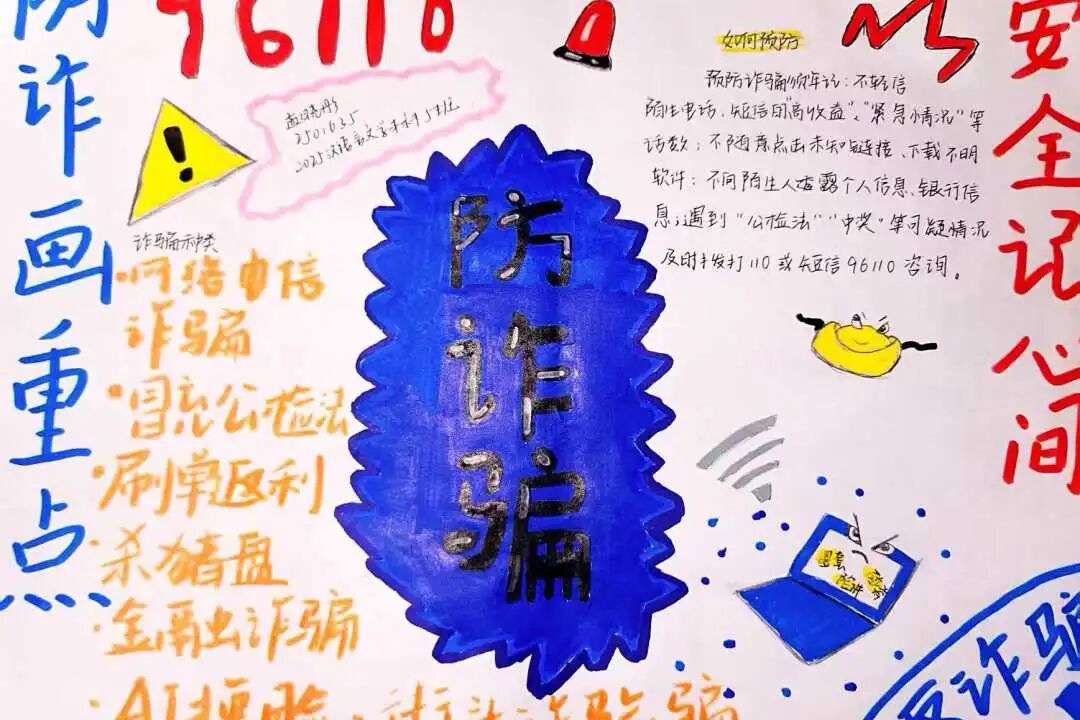 防诈画重点
96110
安全记心间
如何预防
预防诈骗须牢记：不轻信
陌生电话、短信的"高收益"、"紧急情况"等
话数；不随意点击未知链接、下载不明
软件；不向陌生人透露个人信息、银行信
息；遇到"公检法""中奖"等可疑情况
及时拨打110或短信96110咨询。
250635
2025汉语言文学本科5班
诈骗种类
·网络电信
诈骗
·冒充公检法
·刷单返利
·杀猪盘
·金融诈骗
防诈骗
反诈骗